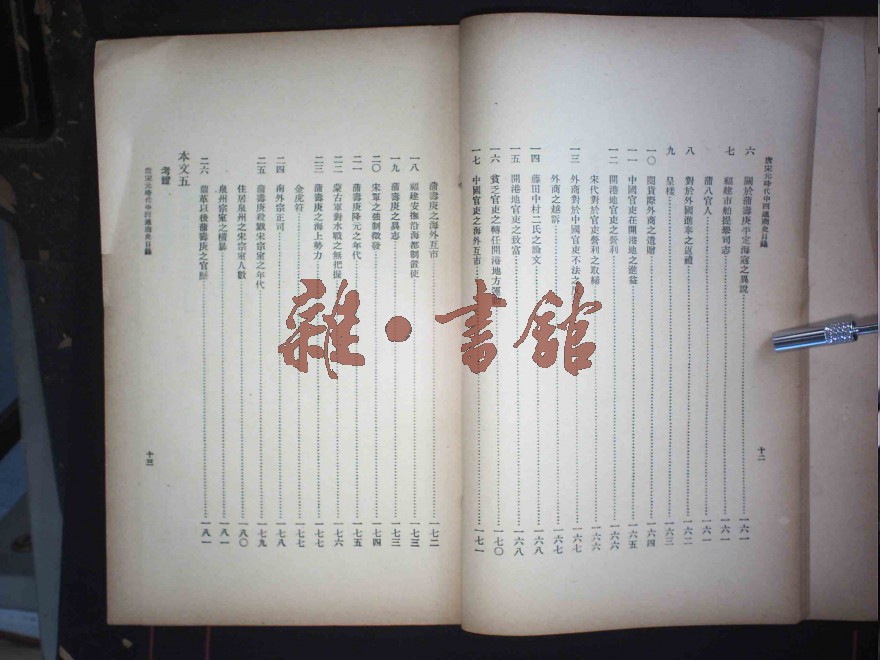 唐宋元時代中西通商史目錄
六 關於蒲壽庚平定海寇之異說 一六一
七 福建市舶提舉司志 一六一
蒲八官人 一六一
八 對於外國進奉之返禮 一六二
九 呈樣 一六三
一〇 閱貨際外商之遺財 一六四
一一 中國官吏在開港地之進益 一六五
一二 開港地官吏之營利 一六六
宋代對於官吏營利之取締 一六六
一三 外商對於中國官吏不法之 一六七
外商之越訴 一六七
一四 藤田中村二氏之論文 一六八
一五 開港地官吏之致富 一六八
一六 貧乏官吏之轉任開港地方 一七〇
一七 中國官吏之海外互市 一七一
十二
蒲壽庚之海外互市 一七二
一八 福建安撫沿海都制置使 一七三
一九 蒲壽庚之異志 一七三
二〇 宋軍之強制徵發 一七四
二一 蒲壽庚降元之年代 一七五
二二 蒙古軍對水戰之無把握 一七六
二三 蒲壽庚之海上勢力 一七七
金虎符 一七七
二四 南外宗正司 一七八
二五 蒲壽庚殺戮宋宗室之年代 一七九
住居泉州之宋宗室人數 一八〇
泉州宗室之橫暴 一八一
二六 鼎革以後蒲壽庚之官歷 一八一
本文五
考證
唐宋元時代中西通商史目錄
十三
雜・書館